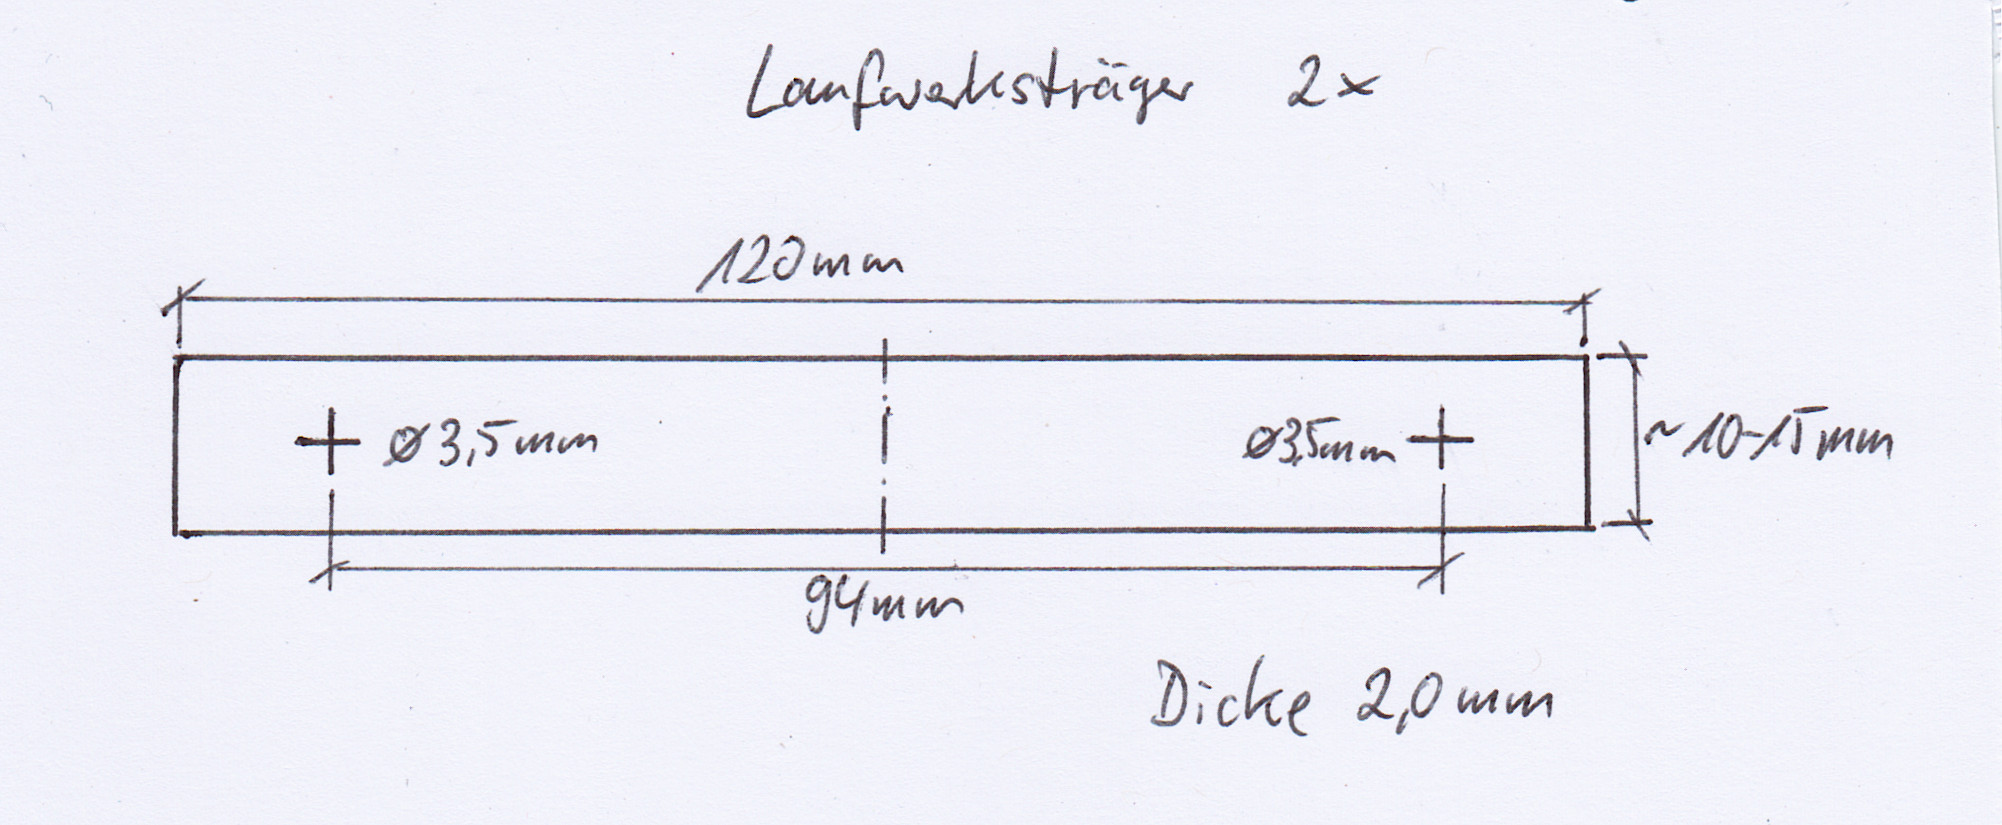 Laufwerksträger 2x
120mm
ø3,5mm ø3,5mm ~10-15mm
94mm
Dicke 2,0mm